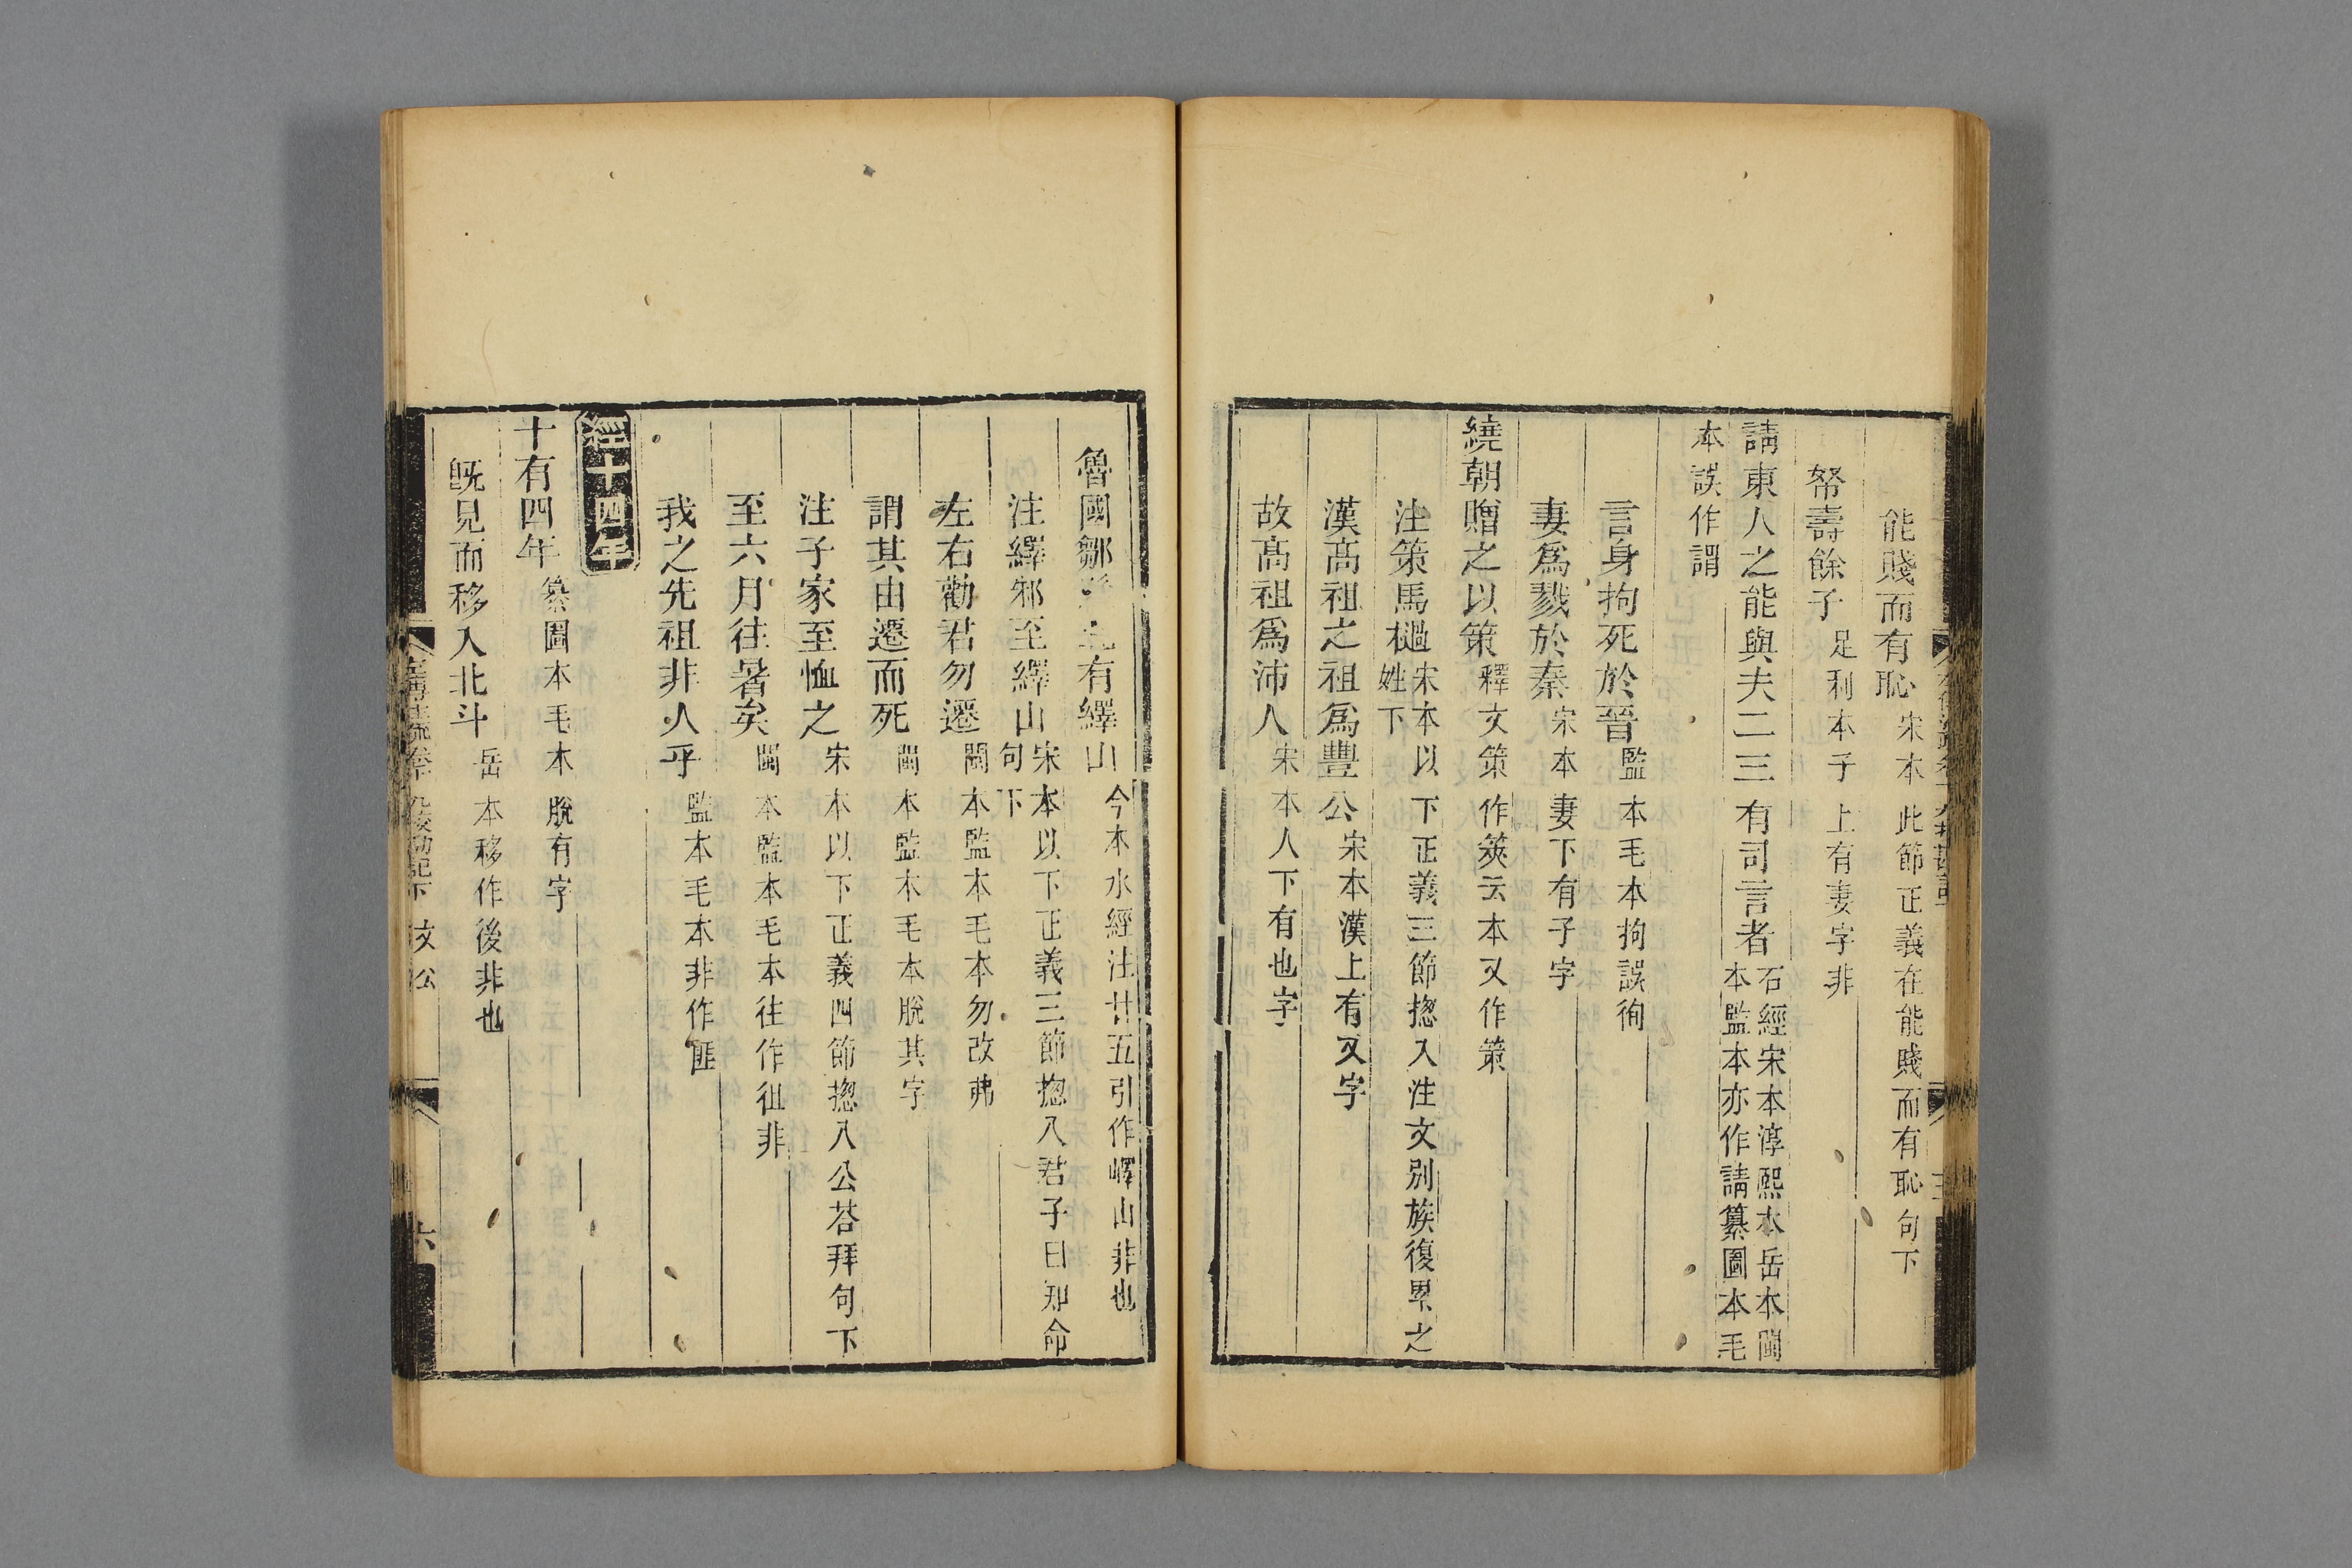 能賤而有恥宋本此節正義在能賤而有恥句下
帑壽餘子足利本子上有妻字非
請東人之能與夫二三有司言者石經宋本淳熙本岳本閩本監本亦作請纂圖本毛
本誤作謂
言身拘死於晉監本毛本拘誤徇
妻爲戮於秦宋本妻下有子字
繞朝贈之以策釋文策作筴云本又作策
注策馬檛宋本以下正義三節揔入注文別族復累之姓下
漢高祖之祖爲豐公宋本漢上有又字
故高祖爲沛人宋本人下有也字
魯國鄒縣北有繹山今本水經注廿五引作嶧山非也
注繹邾至繹山宋本以下正義三節揔入君子曰知命句下
左右勸君勿遷閩本監本毛本勿改弗
謂其由遷而死閩本監本毛本脫其字
注子家至恤之宋本以下正義四節揔入公荅拜句下
至六月往暑矣閩本監本毛本往作徂非
我之先祖非人乎監本毛本非作匪
經十四年
十有四年纂圖本毛本脫有字
旣見而移入北斗岳本移作後非也
六